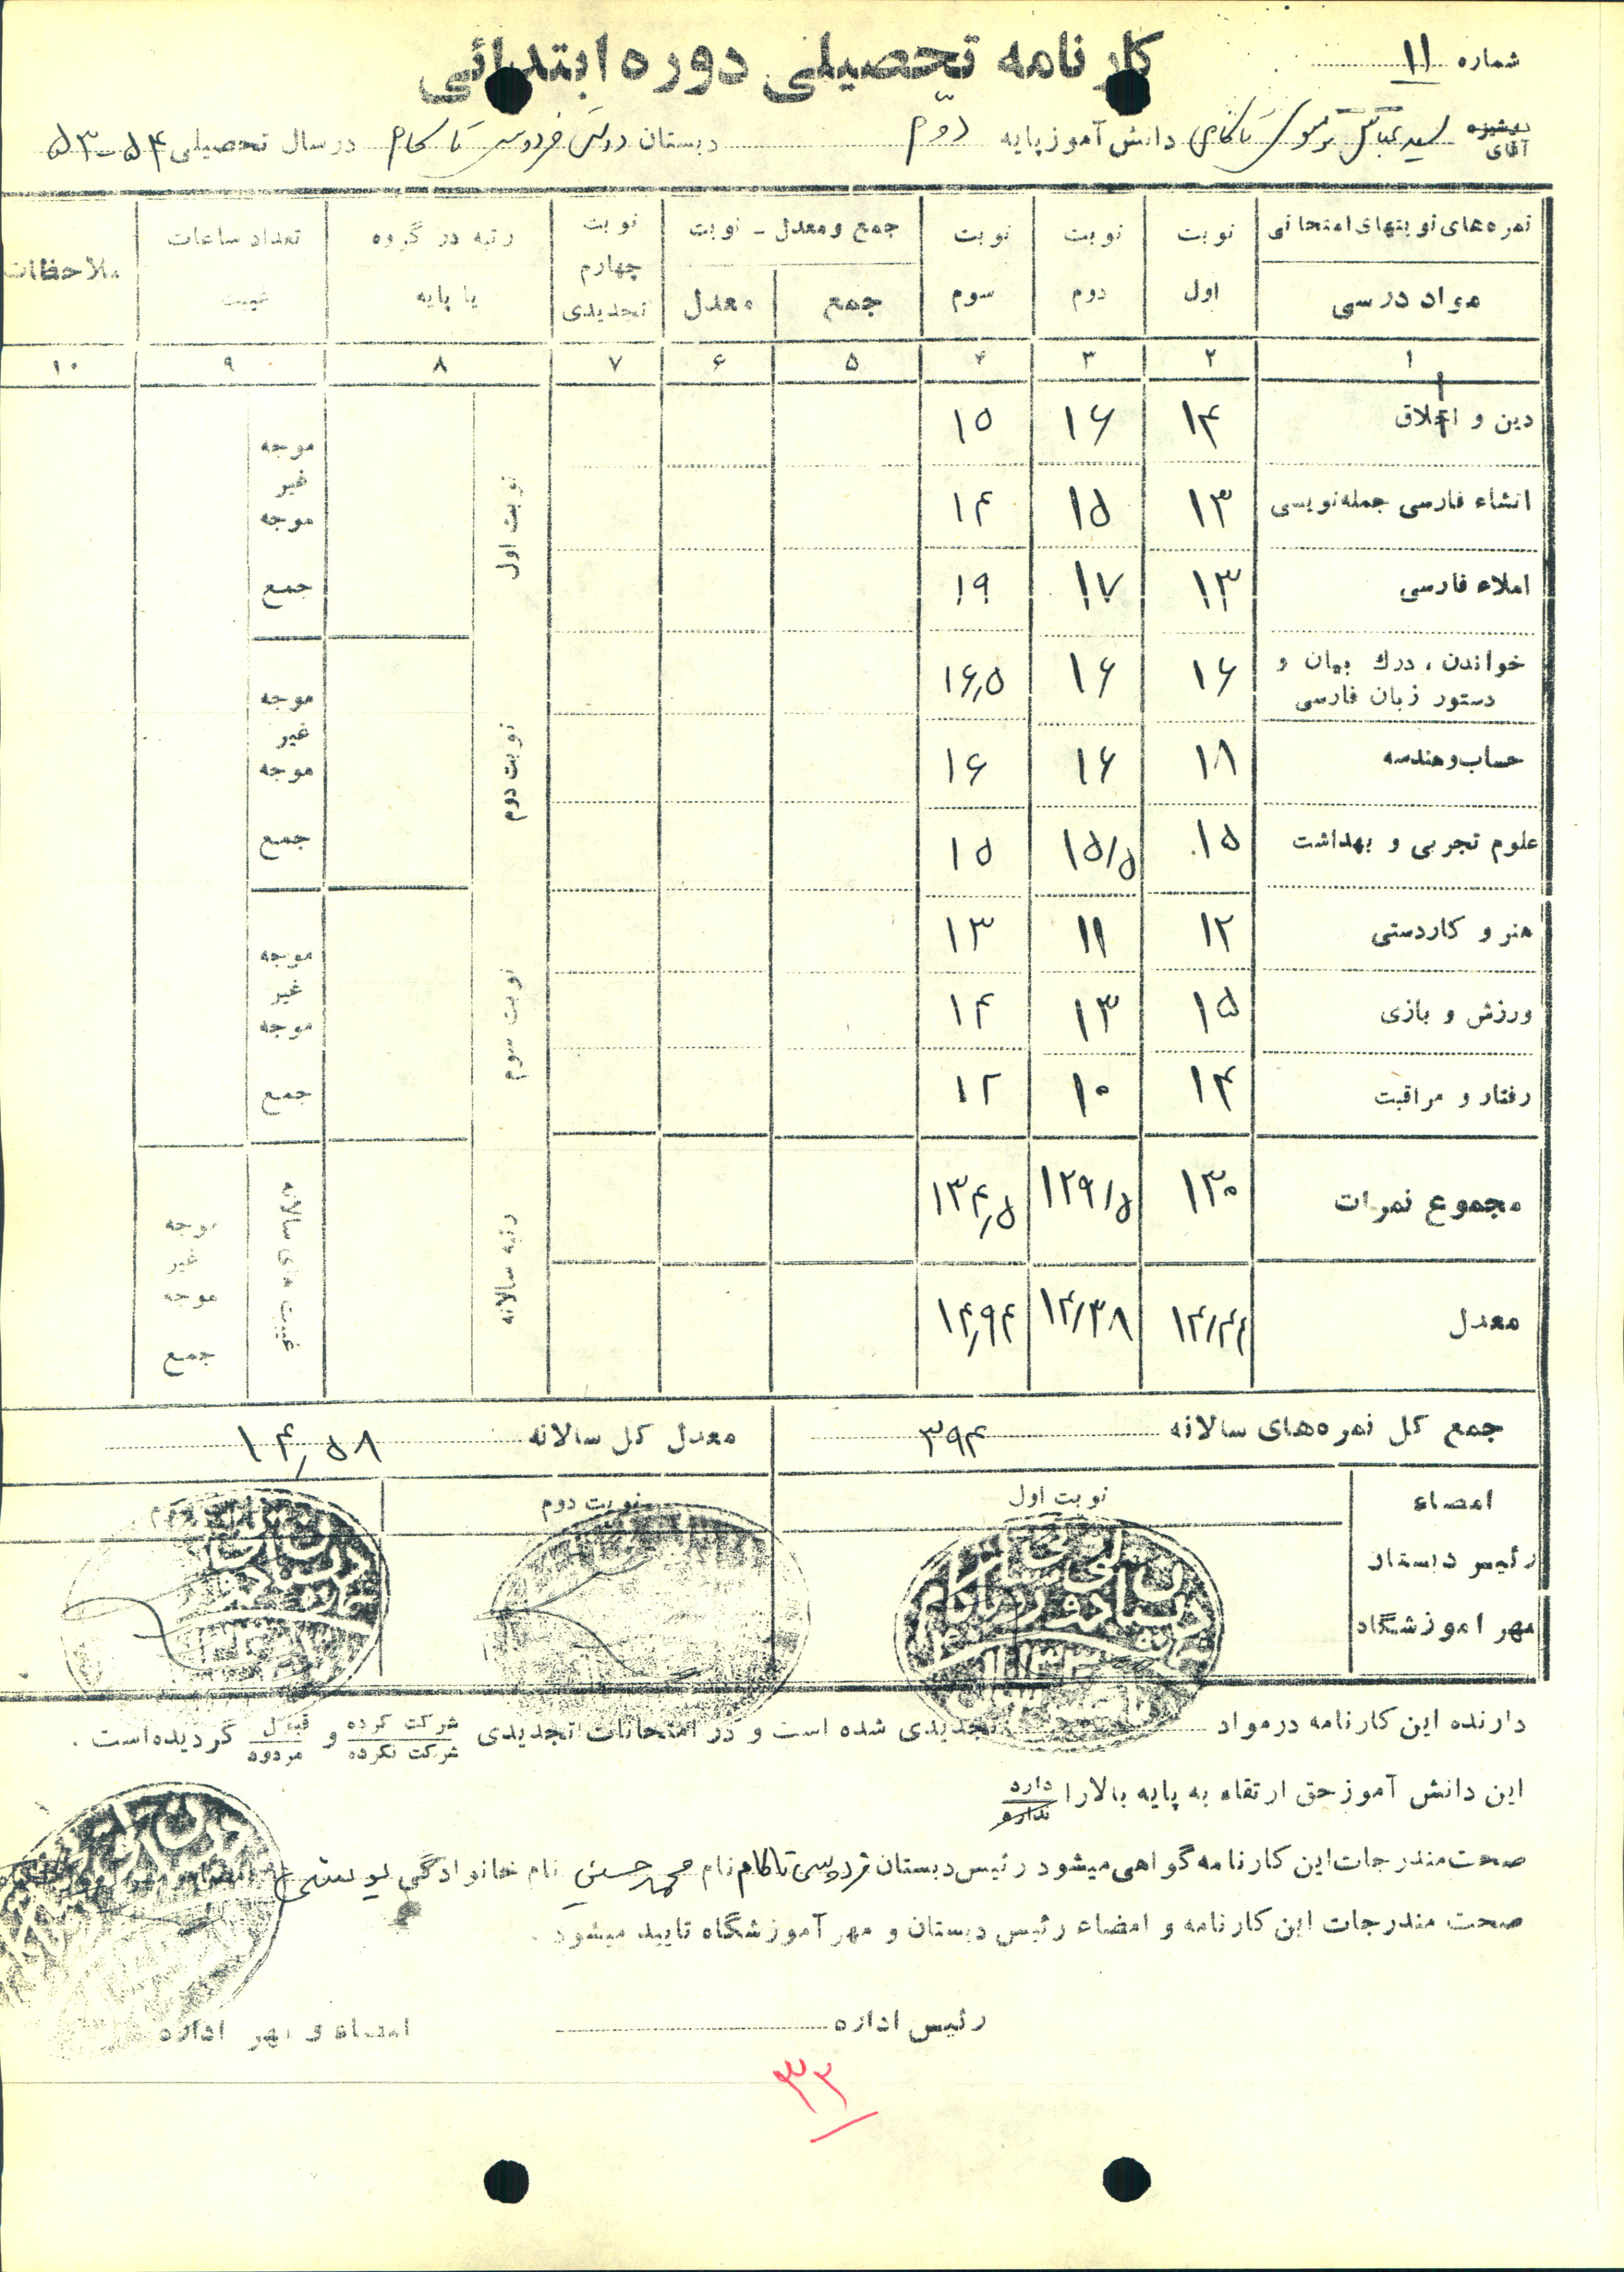 شماره ۱۱
کارنامه تحصیلی دوره ابتدائی
دوشیزه
آقای سید عباس تاکامی دانش آموز پایه دوّم دبستان دولتی فردوسی تاکام در سال تحصیلی ۵۴-۵۳
نمره‌های نوبتهای امتحانی نوبت نوبت نوبت جمع و معدل - نوبت نوبت رتبه در گروه تعداد ساعات ملاحظات
مواد درسی اول دوم سوم جمع معدل چهارم تجدیدی یا پایه غیبت
۱ ۲ ۳ ۴ ۵ ۶ ۷ ۸ ۹ ۱۰
دین و اخلاق ۱۴ ۱۶ ۱۵
انشاء فارسی جمله‌نویسی ۱۳ ۱۵ ۱۴
املاء فارسی ۱۳ ۱۷ ۱۹
خواندن ، درك بیان و ۱۶ ۱۶ ۱۶٫۵
دستور زبان فارسی
حساب و هندسه ۱۸ ۱۶ ۱۶
علوم تجربی و بهداشت ۱۵ ۱۵/۵ ۱۵
هنر و کاردستی ۱۲ ۱۱ ۱۳
ورزش و بازی ۱۵ ۱۳ ۱۴
رفتار و مراقبت ۱۴ ۱۰ ۱۲
مجموع نمرات ۱۳۰ ۱۲۹/۵ ۱۳۴٫۵
معدل ۱۴/۴۴ ۱۴/۳۸ ۱۴٫۹۴
نوبت اول
موجه
غیر
موجه
جمع
نوبت دوم
موجه
غیر
موجه
جمع
نوبت سوم
موجه
غیر
موجه
جمع
رتبه سالانه
غیبت های سالانه
موجه
غیر
موجه
جمع
جمع کل نمره‌های سالانه ۳۹۴ معدل کل سالانه ۱۴٫۵۸
امضاء نوبت اول نوبت دوم
رئیس دبستان
مهر آموزشگاه
دارنده این کارنامه در مواد تجدیدی شده است و در امتحانات تجدیدی شرکت کرده شرکت نکرده و قبول مردود گردیده‌است .
این دانش آموز حق ارتقاء به پایه بالا را دارد ندارد
صحت مندرجات این کارنامه گواهی میشود رئیس دبستان فردوسی تاکام نام محمد حسین نام خانوادگی یوسفی
صحت مندرجات این کارنامه و امضاء رئیس دبستان و مهر آموزشگاه تایید میشود .
رئیس اداره امضاء و مهر اداره
۳۳